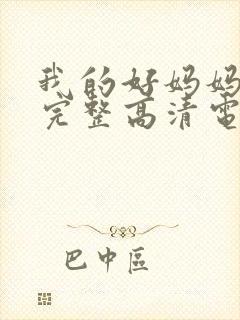 我的好妈妈
完整高清電
巴中區